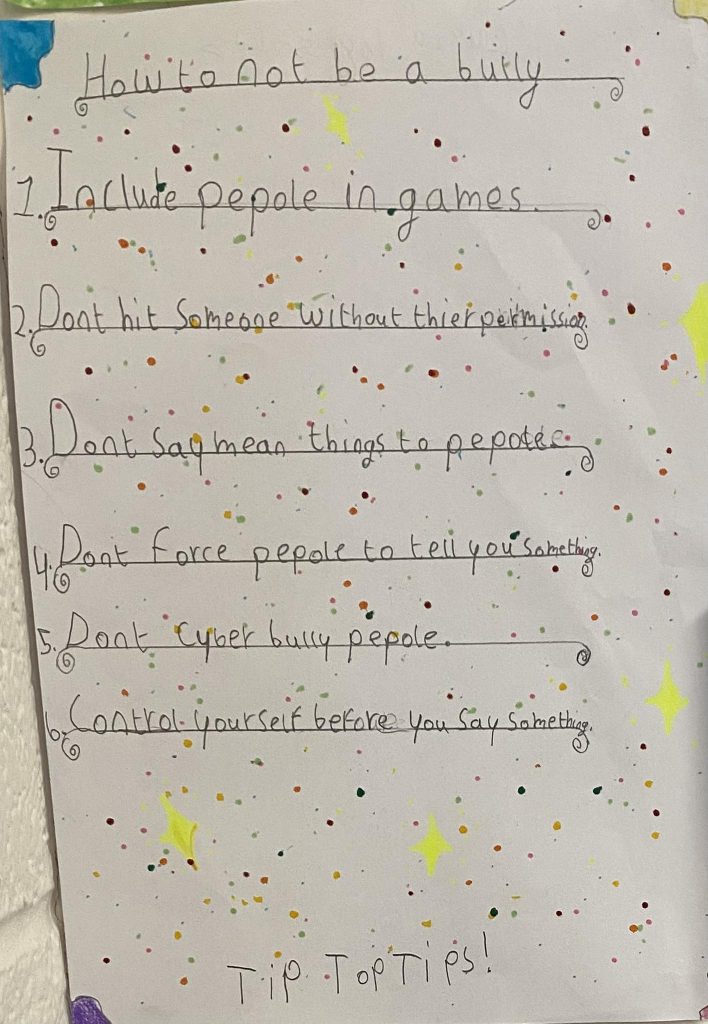 How to not be a bully
1. Include pepole in games.
2. Dont hit Someone without thier permission.
3. Dont Say mean things to pepole.
4. Dont Force pepole to tell you Something.
5. Dont Cyber bully pepole.
6. Control yourself before you Say Something.
Tip Top Tips!